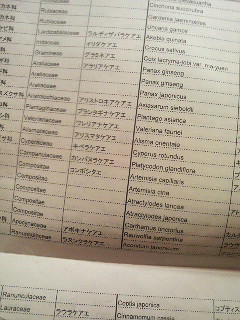 カネ科 Rubiaceae
Cinchona succirubra
カネ科 Rubiaceae Gardenia jasminoides
Uncaria gambir
ケビ科 Lardizabalaceae ラルディザバラケアエ Akebia quinata
Iridaceae イリダケアエ Crocus sativus
Gramineae グラミネアエ Coix lacryma-jobi var. ma-yuen
科 Araliaceae アラリアケアエ Panax ginseng
科 Araliaceae Panax ginseng
Araliaceae Panax japonicus
スクサ科 Aristolochiaceae アリストロキアケアエ Asiasarum sieboldi
科 Plantaginaceae プランタギナケアエ Plantago asiatica
科 Valerianaceae ワレリアナケアエ Valeriana fauriei
Alismataceae アリスマタケアエ Alisma orientale
科 Cyperaceae キペラケアエ Cyperus rotundus
Campanulaceae カンパヌラケアエ Platycodon grandiflora
Compositae コンポシタエ Artemisia capillaris
Compositae Artemisia cina
Compositae Atractylodes lancea
Compositae Atractylodes japonica
Compositae Carthamus tinctorius
科 Apocynaceae アポキナケアエ Rauwolfia serpentina
科 Ranunculaceae ラヌンクラケアエ Aconitum japonicum
Ranunculaceae Coptis japonica コプティス
Lauraceae ラウラケアエ Cinnamomum cassia